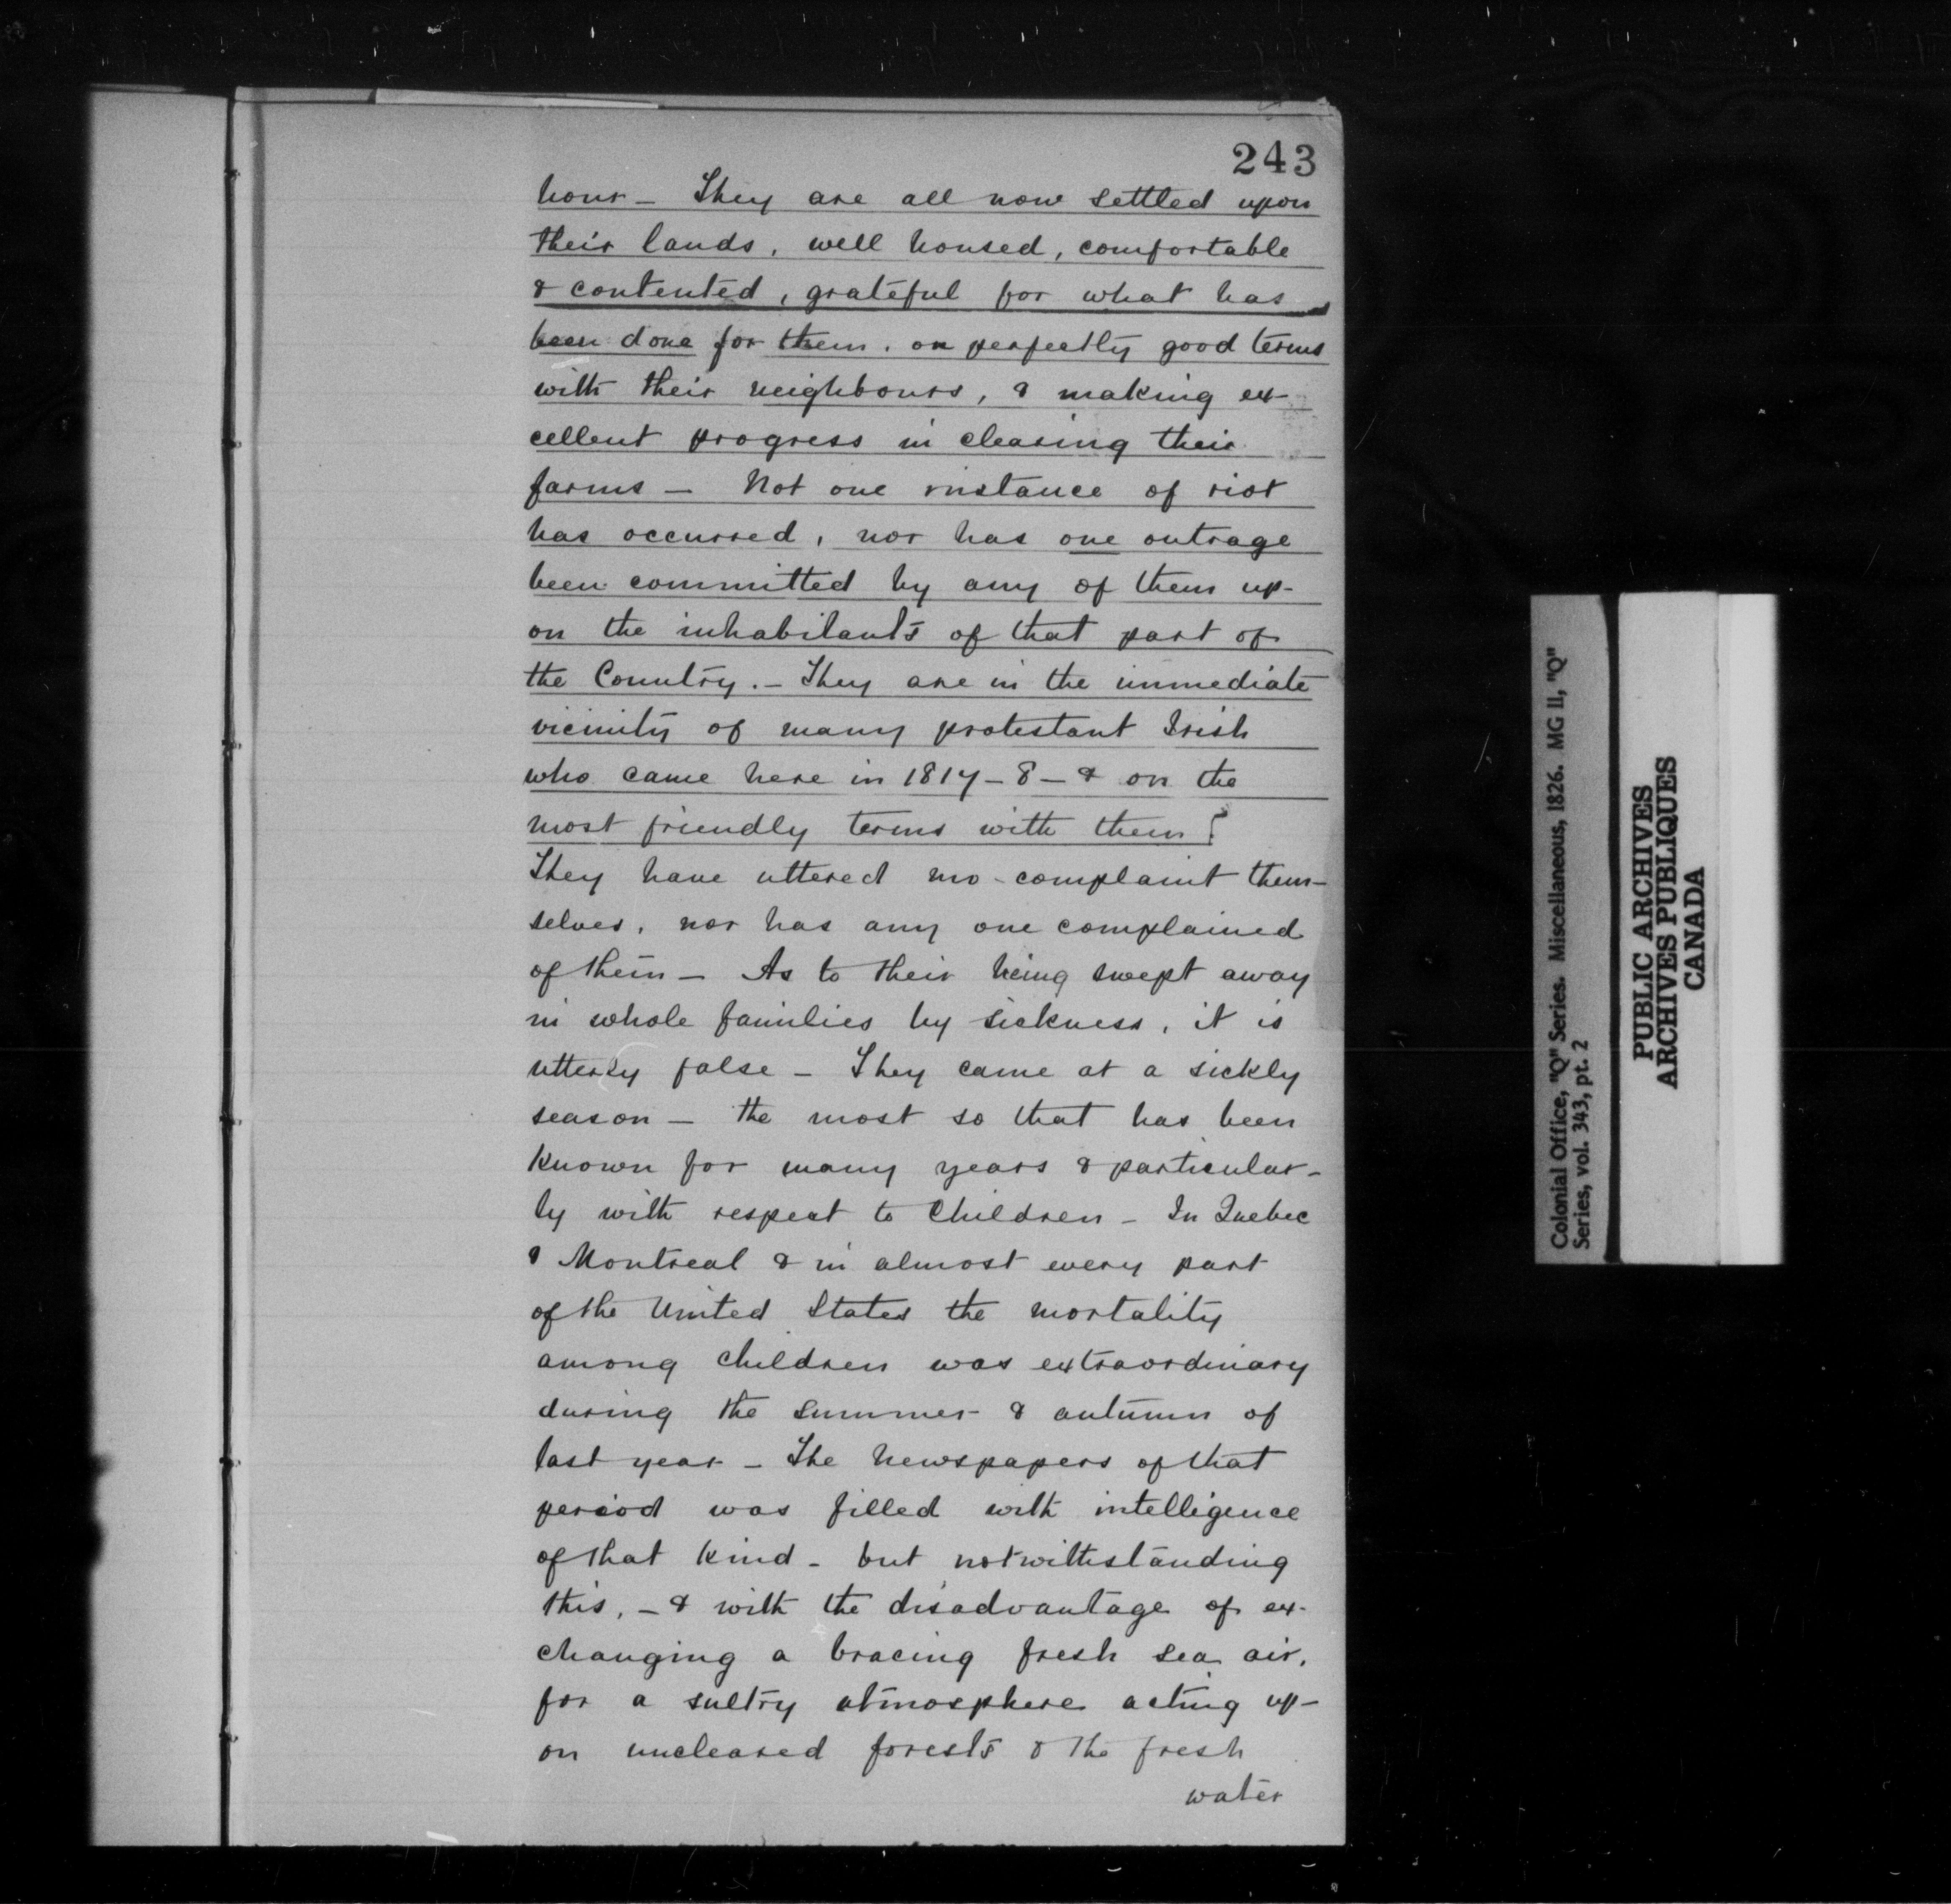 243
hour - They are all now settled upon
their lands, well housed, comfortable
& contented, grateful for what has
been done for them, on perfectly good terms
with their neighbours, & making ex-
cellent progress in clearing their
farms - Not one instance of riot
has occurred, nor has one outrage
been committed by any of them up-
on the inhabitants of that part of
the Country. - They are in the immediate
vicinity of many protestant Irish
who came here in 1817-8 - & on the
most friendly terms with them
They have uttered no complaint them-
selves, nor has any one complained
of them - As to their being swept away
in whole families by sickness, it is
utterly false - They came at a sickly
season - the most so that has been
known for many years & particular-
ly with respect to Children - In Quebec
& Montreal & in almost every part
of the United States the mortality
among children was extraordinary
during the summer & autumn of
last year - The Newspapers of that
period was filled with intelligence
of that kind - but notwithstanding
this, - & with the disadvantage of ex-
changing a bracing fresh sea air,
for a sultry atmosphere acting up-
on uncleared forests & the fresh
water
Colonial Office, "Q" Series. Miscellaneous, 1826. MG 11, "Q"
Series, vol. 343, pt. 2
PUBLIC ARCHIVES
ARCHIVES PUBLIQUES
CANADA